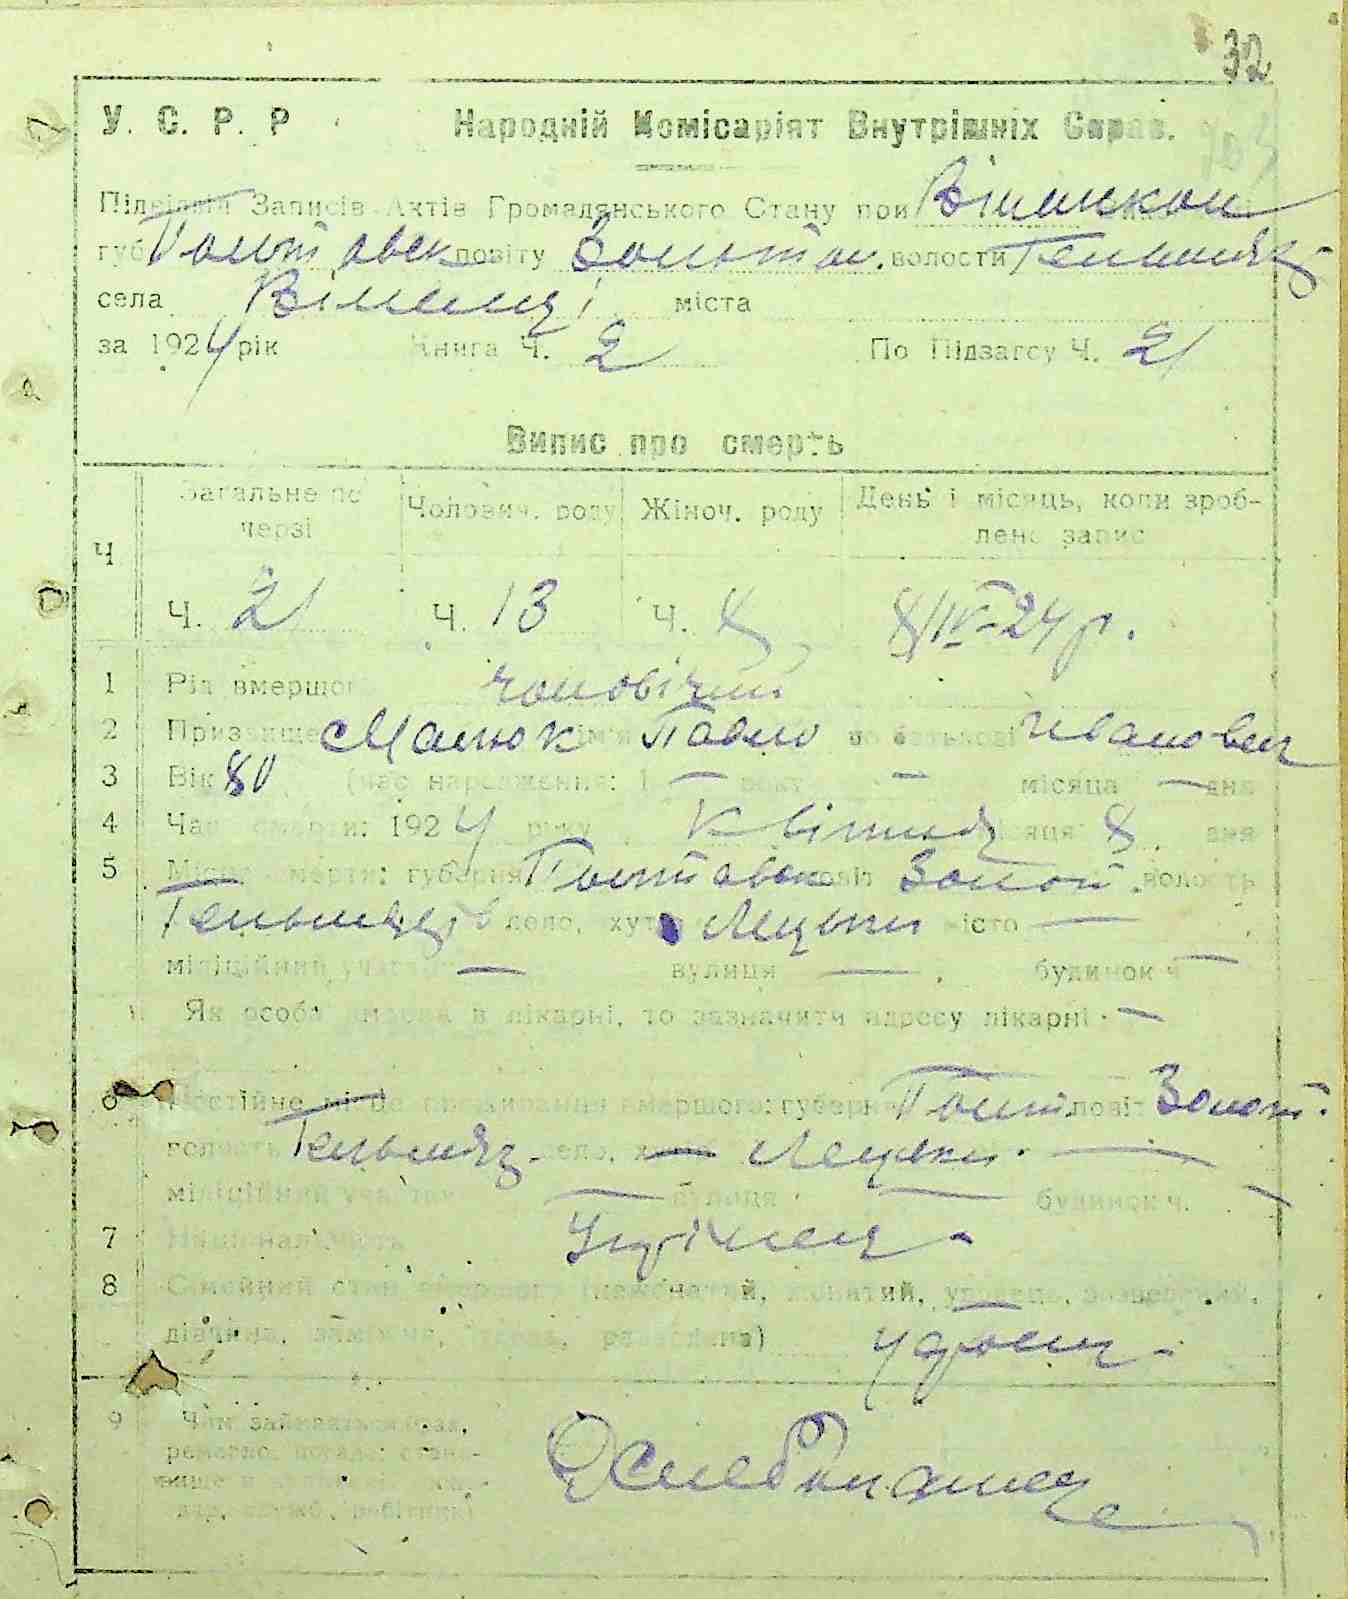 32
У. С. Р. Р Народній Комісаріят Внутрішніх Справ.
Підвідділ Записів Актів Громадянського Стану при
губ. Полтавськ повіту Золотон. волости Гельмяз.
села міста
за 1924 рік Книга Ч. 2 По Підзагсу Ч. 21
Випис про смерть
Ч Загальне по черзі Чоловіч. роду Жіноч. роду День і місяць, коли зроблено запис
Ч. 21 Ч. 13 Ч. 8 8/IV-24 р.
1 Рід вмершого чоловічий
2 Призвище Мантюк ім'я Павло по батькові Иванович
3 Вік 80 (час народження: 1 — року — місяца — дня
4 Час смерти: 1924 року Квітня місяця 8 дня
5 Місце смерти: губерня Полтавськ повіт Золот. волость
село, хут. місто —
міліційний участок — вулиця — , будинок ч —
Як особа вмерла в лікарні, то зазначити адресу лікарні —
6 Постійне місце проживання вмершого: губерня Полт повіт Золот.
волость Гельмяз. село, —
міліційний участок — вулиця — будинок ч. —
7 Національність Українец -
8 Сімейний стан вмершого (нежонатий, жонатий, удовець, розведений,
дівчина, заміжня, вдова, розведена) удовец -
9 Чим займався